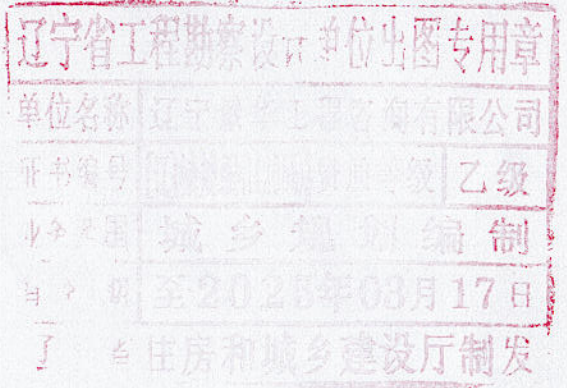 辽宁省工程勘察设计单位出图专用章
单位名称 辽宁 工程咨询有限公司
证书编号 级 乙级
业务范围 城乡规划编制
有 效 期 至2025年03月17日
辽 省住房和城乡建设厅制发